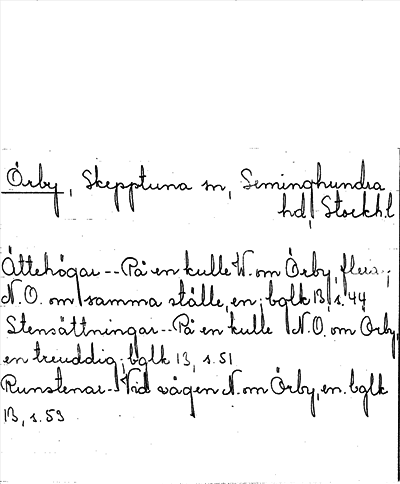 Örby, Skepptuna sn, Seminghundra
hd, Stockh.l
Ättehögar -- På en kulle W. om Örby, flera;
N.O. om samma ställe, en; bglk 13, s. 44
Stensättningar -- På en kulle N.O. om Örby,
en treuddig; bglk 13, s. 51
Runstenar -- Vid vägen N. om Örby, en. bglk
13, s. 53